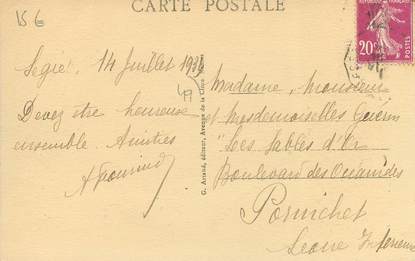 15 €
CARTE POSTALE
RÉPUBLIQUE FRANÇAISE
20c
POSTES
Segré, 14 Juillet
Devez être heureux
ensemble. Amitiés
G. Artaud, éditeur, Avenue de la Close
Madame, Monsieur
et Mesdemoiselles Guérin
"Les Sables d'Or"
Boulevard des Océanides
Pornichet
Loire Inférieure